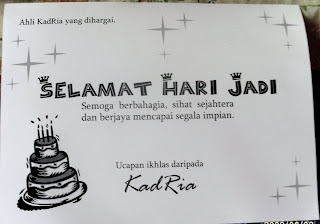 Ahli KadRia yang dihargai,
SELAMAT HARI JADI
Semoga berbahagia, sihat sejahtera
dan berjaya mencapai segala impian.
Ucapan ikhlas daripada
KadRia